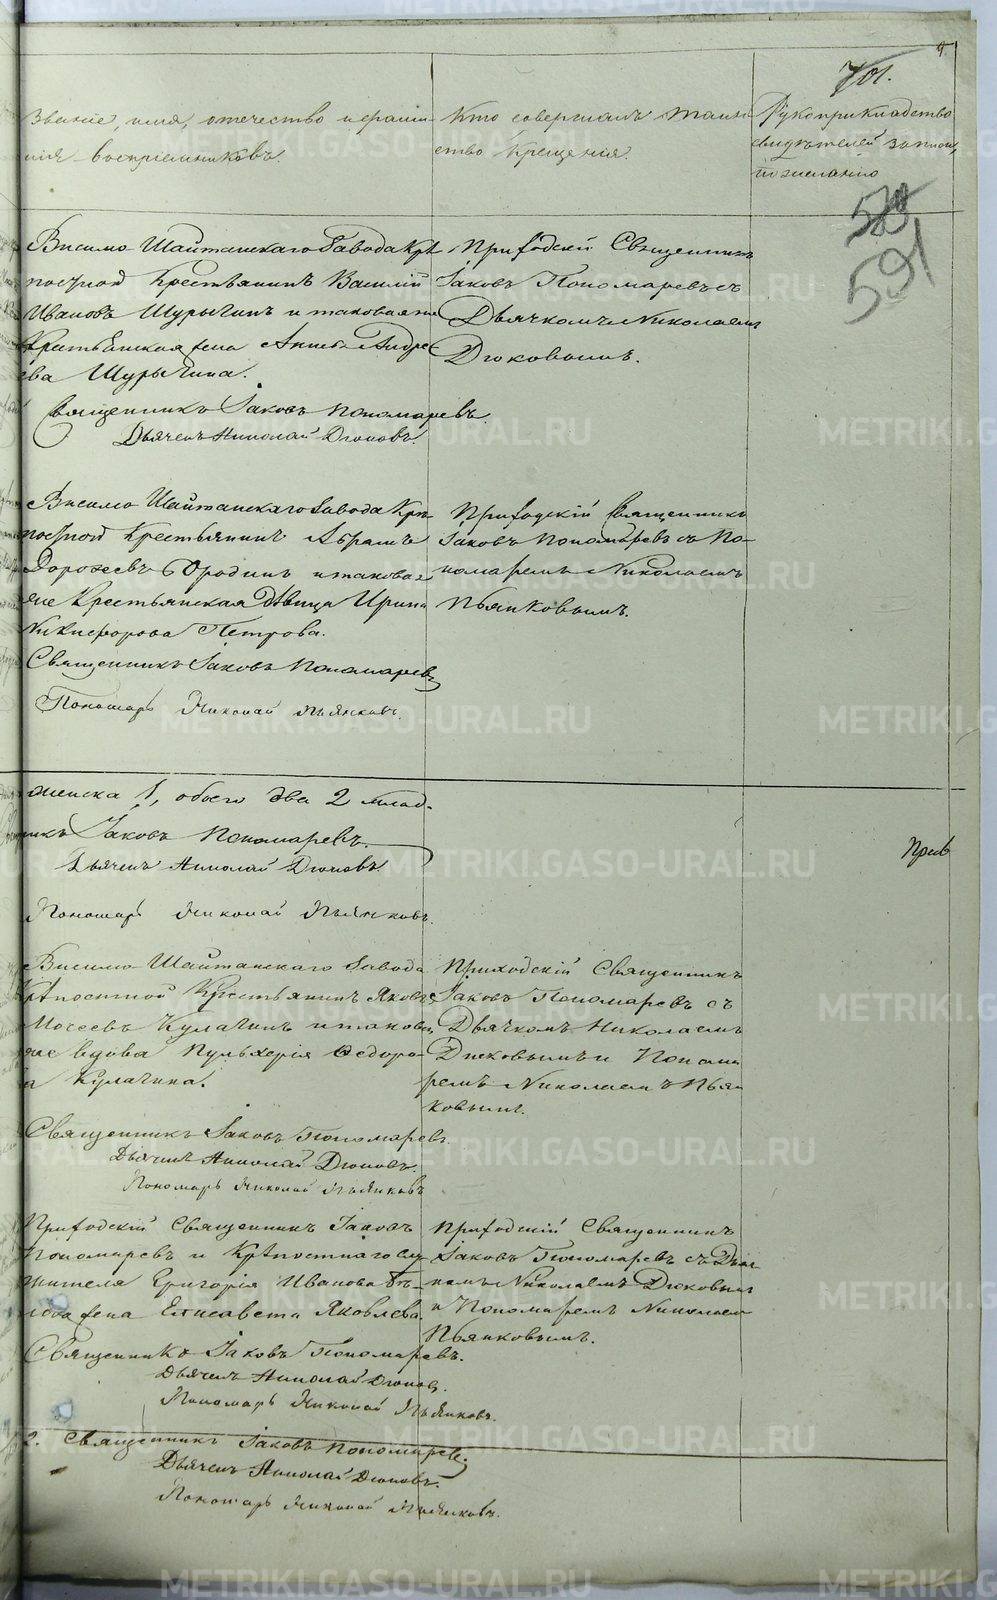 4
701.
Званіе, имя, отечество и фамилія воспріемниковъ.
Кто совершалъ таинство крещенія.
Рукоприкладство
свидѣтелей записи
по желанію
591
Висимо Шайтанскаго Завода Крѣ
постной Крестьянинъ Василій
Ивановъ Шурыгинъ и таковая же
Крестьянская жена Анна Андре
ева Шурыгина.
Священникъ Іаковъ Пономаревъ.
Дьячекъ Николай Дюковъ.
Приходскій Священникъ
Іаковъ Пономаревъ съ
Дьячкомъ Николаемъ
Дюковымъ.
Висимо Шайтанскаго Завода Крѣ-
постной Крестьянинъ Абрамъ
Дорофеевъ Бродинъ и такова-
же Крестьянская Дѣвица Ирина
Никифорова Петрова.
Священникъ Іаковъ Пономаревъ
Пономарь Николай Пьянковъ.
Приходскій Священникъ
Іаковъ Пономаревъ съ По-
номаремъ Николаемъ
Пьянковымъ.
женска 1, обоего два 2 млад-
никъ Іаковъ Пономаревъ.
Дьячекъ Николай Дюковъ
Пономарь Николай Пьянковъ.
Висимо Шайтанскаго Завода
Крѣпостной Крестьянинъ Яковъ
Мосеевъ Кулагинъ и таковая
же вдова Пульхерія Федоро-
а Кулагина.
Священникъ Іаковъ Пономаревъ.
Дьячекъ Николай Дюковъ.
Пономарь Николай Пьянковъ
Приходскій Священникъ
Іаковъ Пономаревъ съ
Дьячкомъ Николаемъ
Дюковымъ и Понома
ремъ Николаемъ Пьян
ковымъ.
Приходскій Священникъ Іаковъ
Пономаревъ и Крѣпостнаго слу
жителя Григорія Иванова Бѣ-
лова жена Елисавета Яковлева.
Священникъ Іаковъ Пономаревъ.
Дьячекъ Николай Дюковъ.
Пономарь Николай Пьянковъ.
Приходскій Священникъ
Іаковъ Пономаревъ съ Дьяч
комъ Николаемъ Дюковымъ
и Пономаремъ Николаем
Пьянковымъ.
2. Священникъ Іаковъ Пономаревъ.
Дьячекъ Николай Дюковъ.
Пономарь Николай Пьянковъ.
METRIKI.GASO-URAL.RU